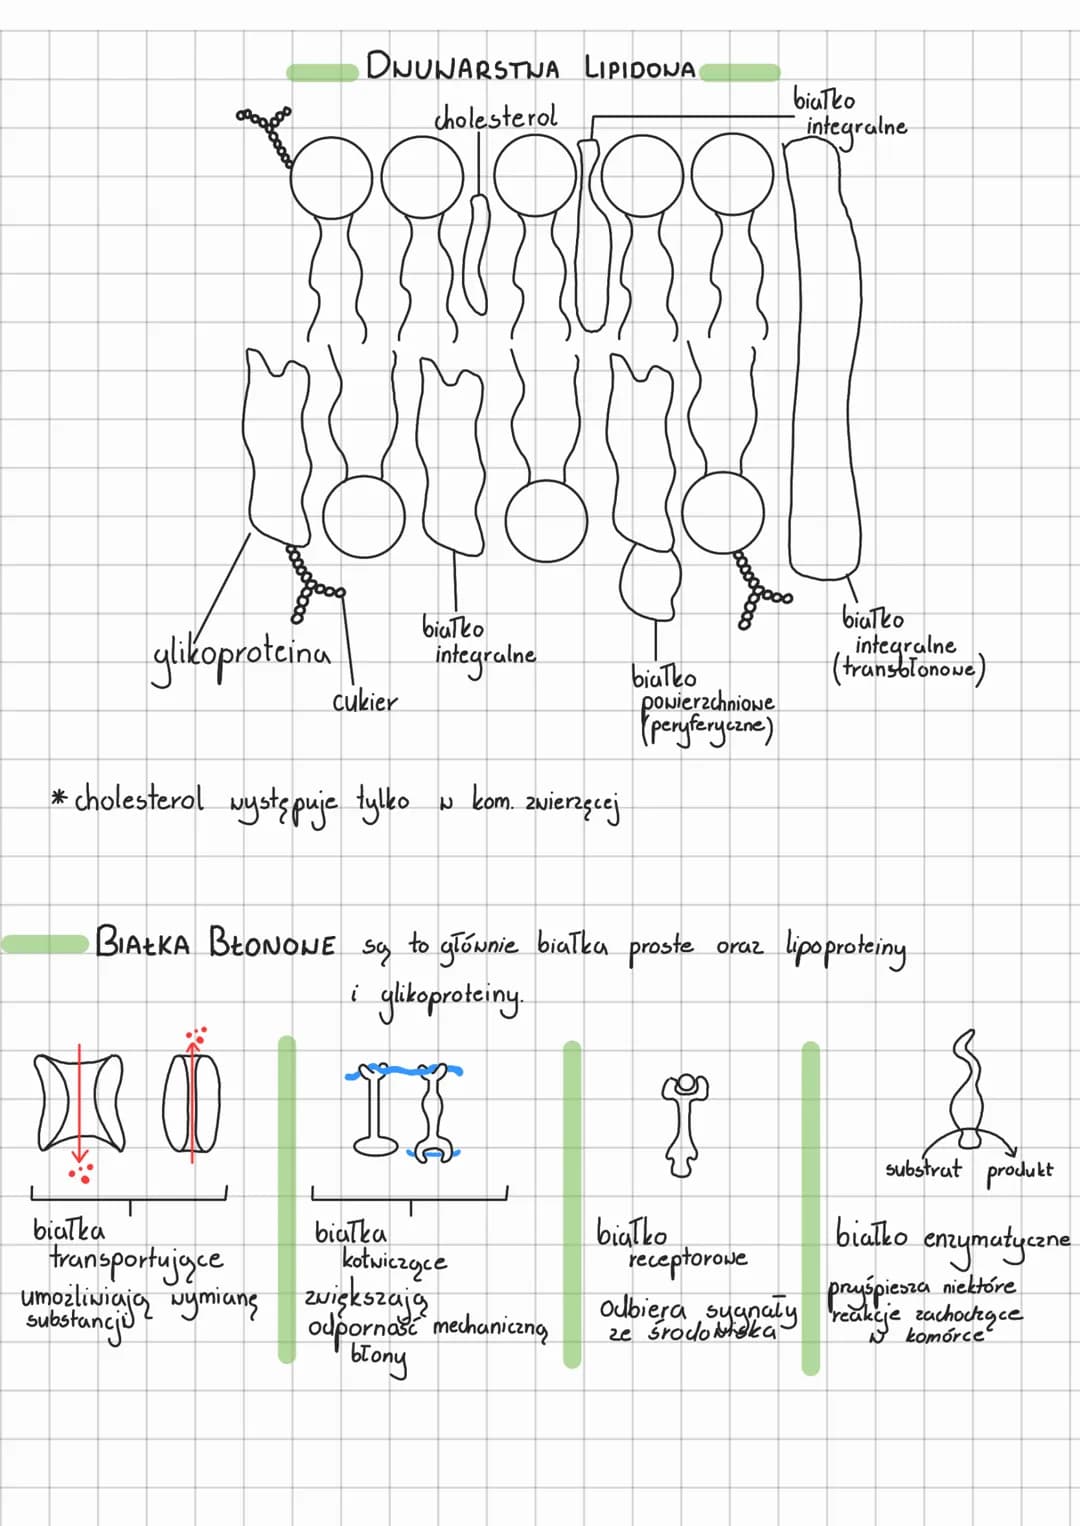 DWUWARSTWA LIPIDOWA
cholesterol
białko
integralne
glikoproteina
cukier
białko
integralne
białko
powierzchniowe
(peryferyczne)
białko
integralne
(transbłonowe)
* cholesterol występuje tylko w kom. zwierzęcej
BIAŁKA BŁONOWE są to głównie białka proste oraz lipoproteiny
i glikoproteiny.
białka
transportujące
umożliwiają wymianę
substancji
białka
kotwiczące
zwiększają
odporność mechaniczną
błony
białko
receptorowe
odbiera sygnały
ze środowiska
substrat produkt
białko enzymatyczne
pryśpiesza niektóre
reakcje zachodzące
w komórce